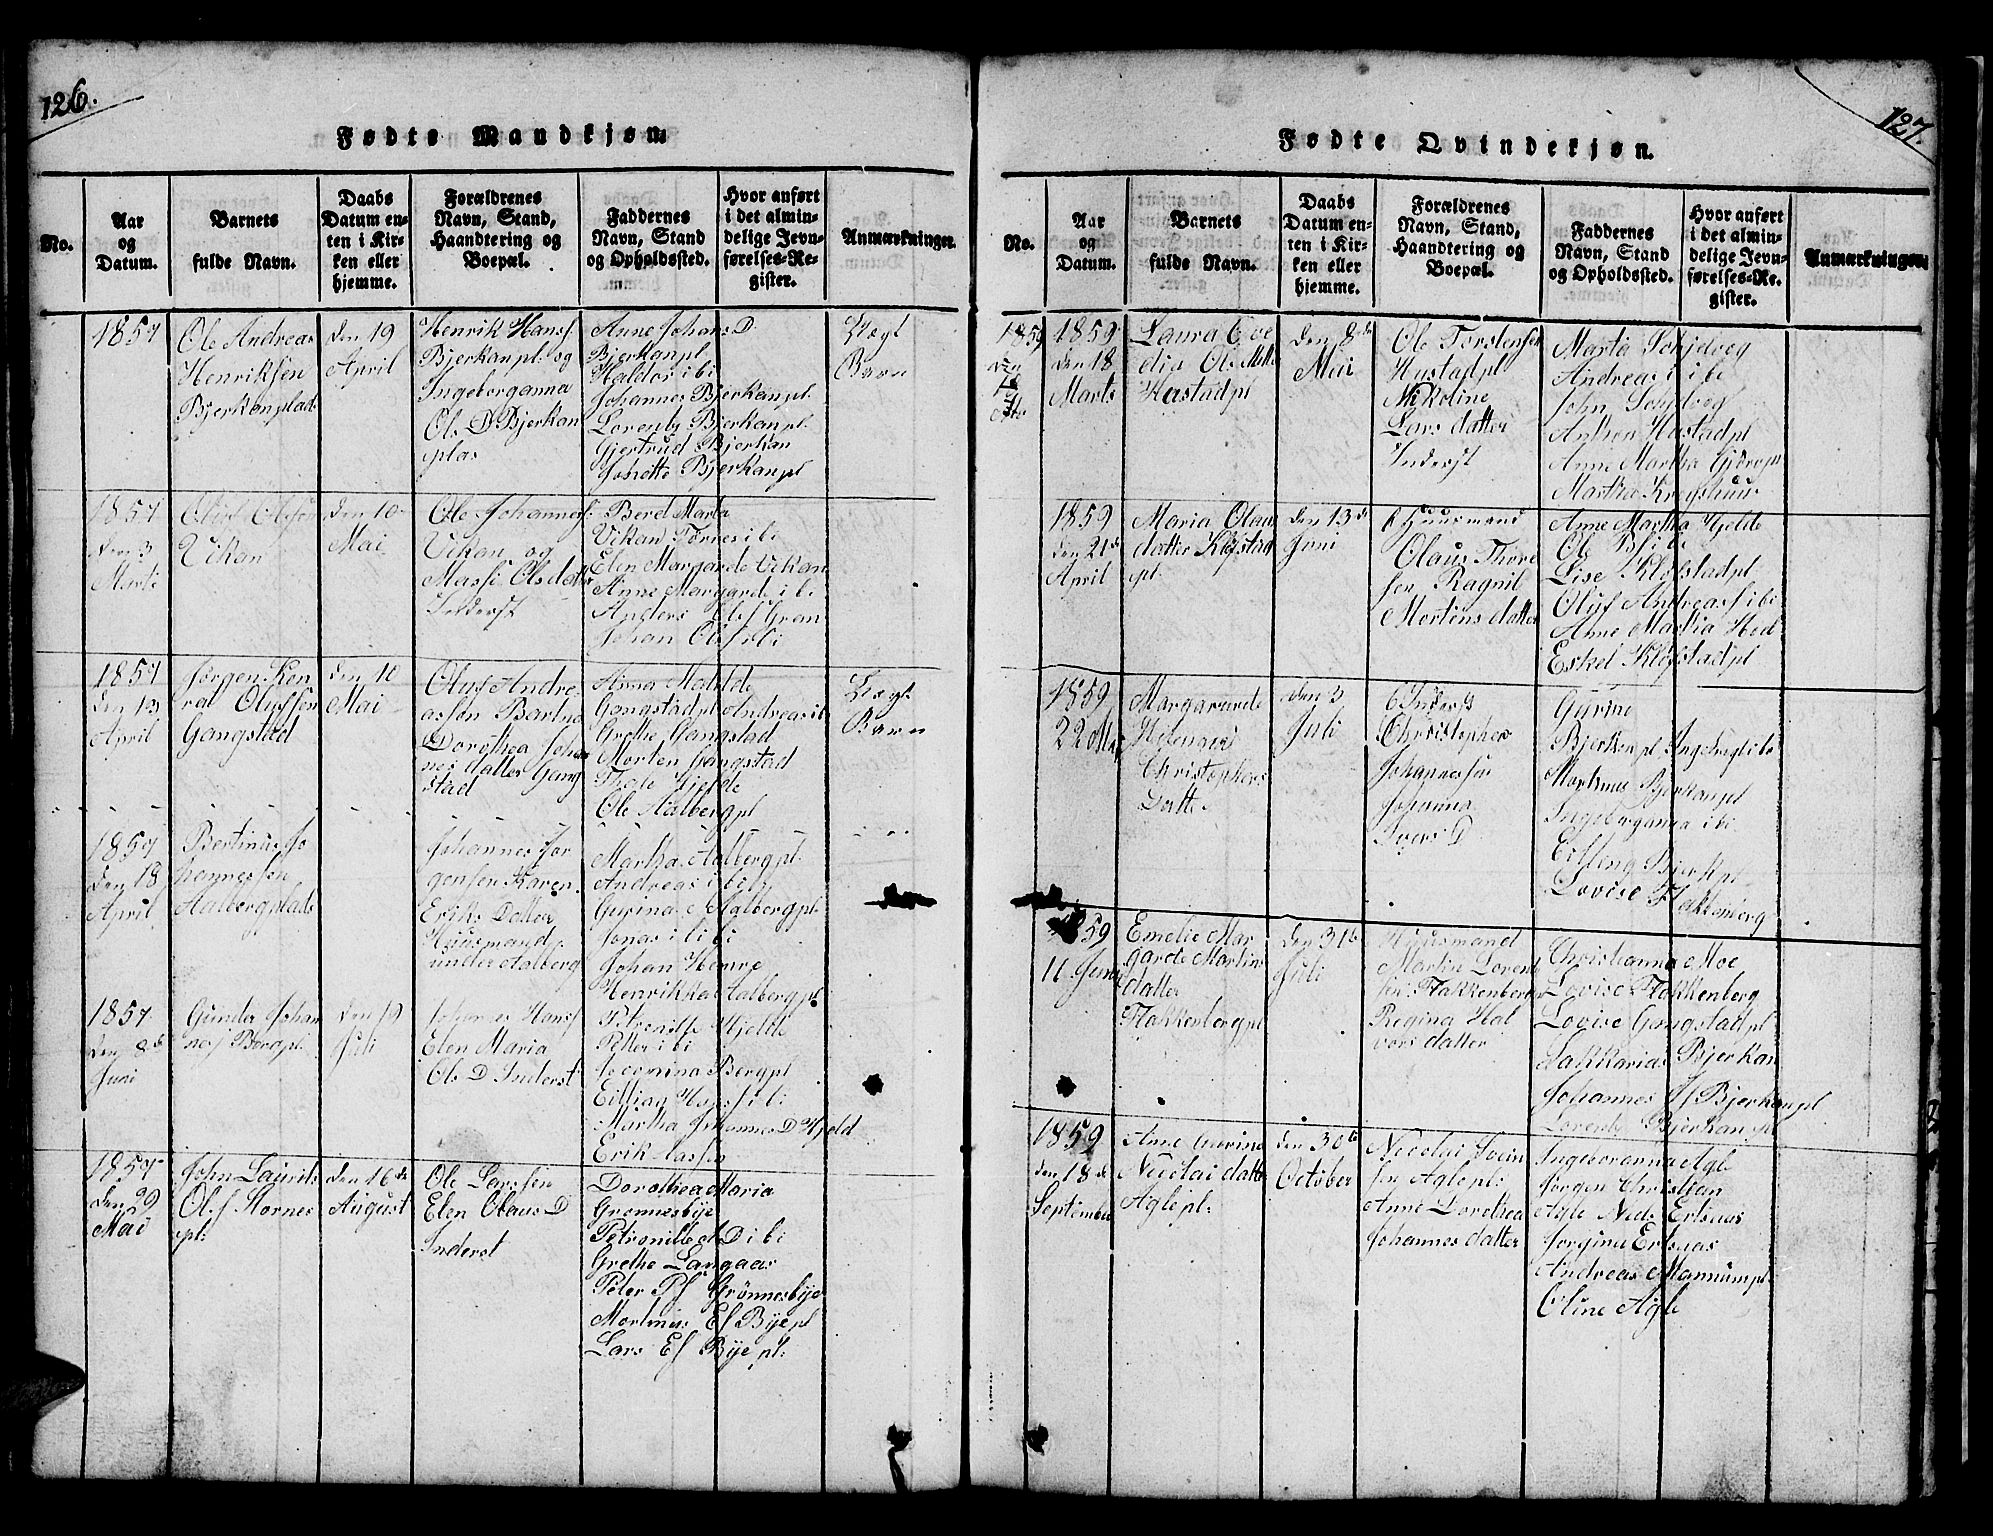 126.
Fødte Mandkjøn
No.
Aar
og
Datum.
Barnets
fulde Navn.
Daabs
Datum en-
ten i Kir-
ken eller
hjemme.
Forældrenes
Navn, Stand,
Haandtering og
Boepæl.
Faddernes
Navn, Stand
og Opholdssted.
Hvor anført
i det almin-
delige Jevn-
førelses-Re-
gister.
Anmærkninger.
1857
Ole Andreas
Henriksen
Bjerkanplads
den 19
April
Henrik Hansf
Bjerkanpl. og
Ingeborganna
Ols D Bjerkan
plas
Anne Johans D
Bjerkanpl
Haldor ibi
Johannes Bjerkanpl.
Lorents Bjerkanpl.
Gjertrud Bjerkan
Johette Bjerkanpl
Uægt
Barn
1857
den 3
Marti
Oluf Olsen
Vikan
den 10
Mai
Ole Johannesf.
Vikan og
Massi Olsdatter
Inderst
Beret Marta
Vikan Torres ibi
Elen Margarde Vikan
Anne Margarde ibi
Anders Olsf Gran
Johan Olsf ibi
1857
den 13
April
Jørgen Kon
rad Olufsen
Gangstad
den 10
Mai
Oluf Andre
assen Bertno
Dorothea Johan
nes datter Gang
stad
Anna Matilde
Gangstadpl Andreas ibi
Grethe Gangstad
Morten Gangstad
Hjelde
Ole Aalbergpl
Uægt
Barn
1857
den 18
April
Bertinus Jo
hannessen
Aalbergplads
Johannes Jør
gensen Karen
Eriks Datter
Huusmand
under Aalberg
Martha Aalbergpl.
Andreas ibi
Gurina Aalbergpl.
Jonas ibi
Johan Hemre
Henrikka Aalbergpl
1857.
den 8de
Juni
Gunder Johan
nesf Bergpl.
den 19
Juli
Johannes Hansf
Elen Maria
Ols D Inderst
Petronille Hjelde
Petter ibi
Jecomina Bergpl
Eilling Hansf ibi
Martha Johannes D Hjeld
Erik Lassen
1857
den 29
Mai
John Laurits
Olsf Stornes
pl.
den 16de
August
Ole Larssen
Elen Olaus D
Inderst
Dorothea Maria
Grønnesbye
Petronille D ibi
Grethe Langaas
Peter Pf Grønnesbye
Mortinus Ef Byepl
Lars Ef Bye pl:
127.
Fødte Qvindekjøn.
No.
Aar
og
Datum.
Barnets
fulde Navn.
Daabs
Datum en-
ten i Kir-
ken eller
hjemme.
Forældrenes
Navn, Stand,
Haandtering og
Boepæl.
Faddernes
Navn, Stand
og Opholdssted.
Hvor anført
i det almin-
delige Jevn-
førelses-Re-
gister.
Anmærkninger.
1859
1859
den 18
Marts
Laura
dia Ols datter
Hustadpl
den 8de
Mai
Ole Torstensen
Hustadpl
Nikoline
Lars datter
Inderst
Marta
Andreas ibi
John
Anton Hustadpl
Anne Martha
Martha
1859
den 21de
April
Maria Olaus
datter Kløfstad
pl.
den 13de
Juni
Huusmand
Olaus Thore
sen Ragnil
Mortens datter
Anne Martha Hjelde
Ole ibi
Lise Kløfstadpl
Oluf Andreasf ibi
Anne Martha
Eskel Kløfstadpl
1859
22
Margarende
Christophers
Datter
den 3
Juli
Inderst
Christopher
Johannessen
Johanna
Ivers D
Gurine
Bjerkanpl ibi
Mortinus Bjerkanpl
Ingeborganna ibi
Eilling Bjerkpl
Lovise Flakkenberg
1859
11 Juni
Emelie Mar
garde Martins
datter
Flakkenbergpl
den 31te
Juli
Huusmand
Martin Lorent
sen Flakkenberg
Regina Hal
vors datter
Christianna Moe
Lovise Flakkenberg
Lovise Gangstadpl
Sakkarias Bjerkan
Johannes Jf Bjerkanpl
Lorents Bjerkanpl
1859
den 18de
September
Anne Marina
Nicolai datter
Aglepl:
den 30te
October
Nicolai Svein
sen Aglepl.
Anne Dorethea
Johannes datter
Ingeboranna Agle
Jørgen Christian
Agle Nils Ertsaas
Jorgina Ertsaas
Andreas Mannumpl
Oline Agle